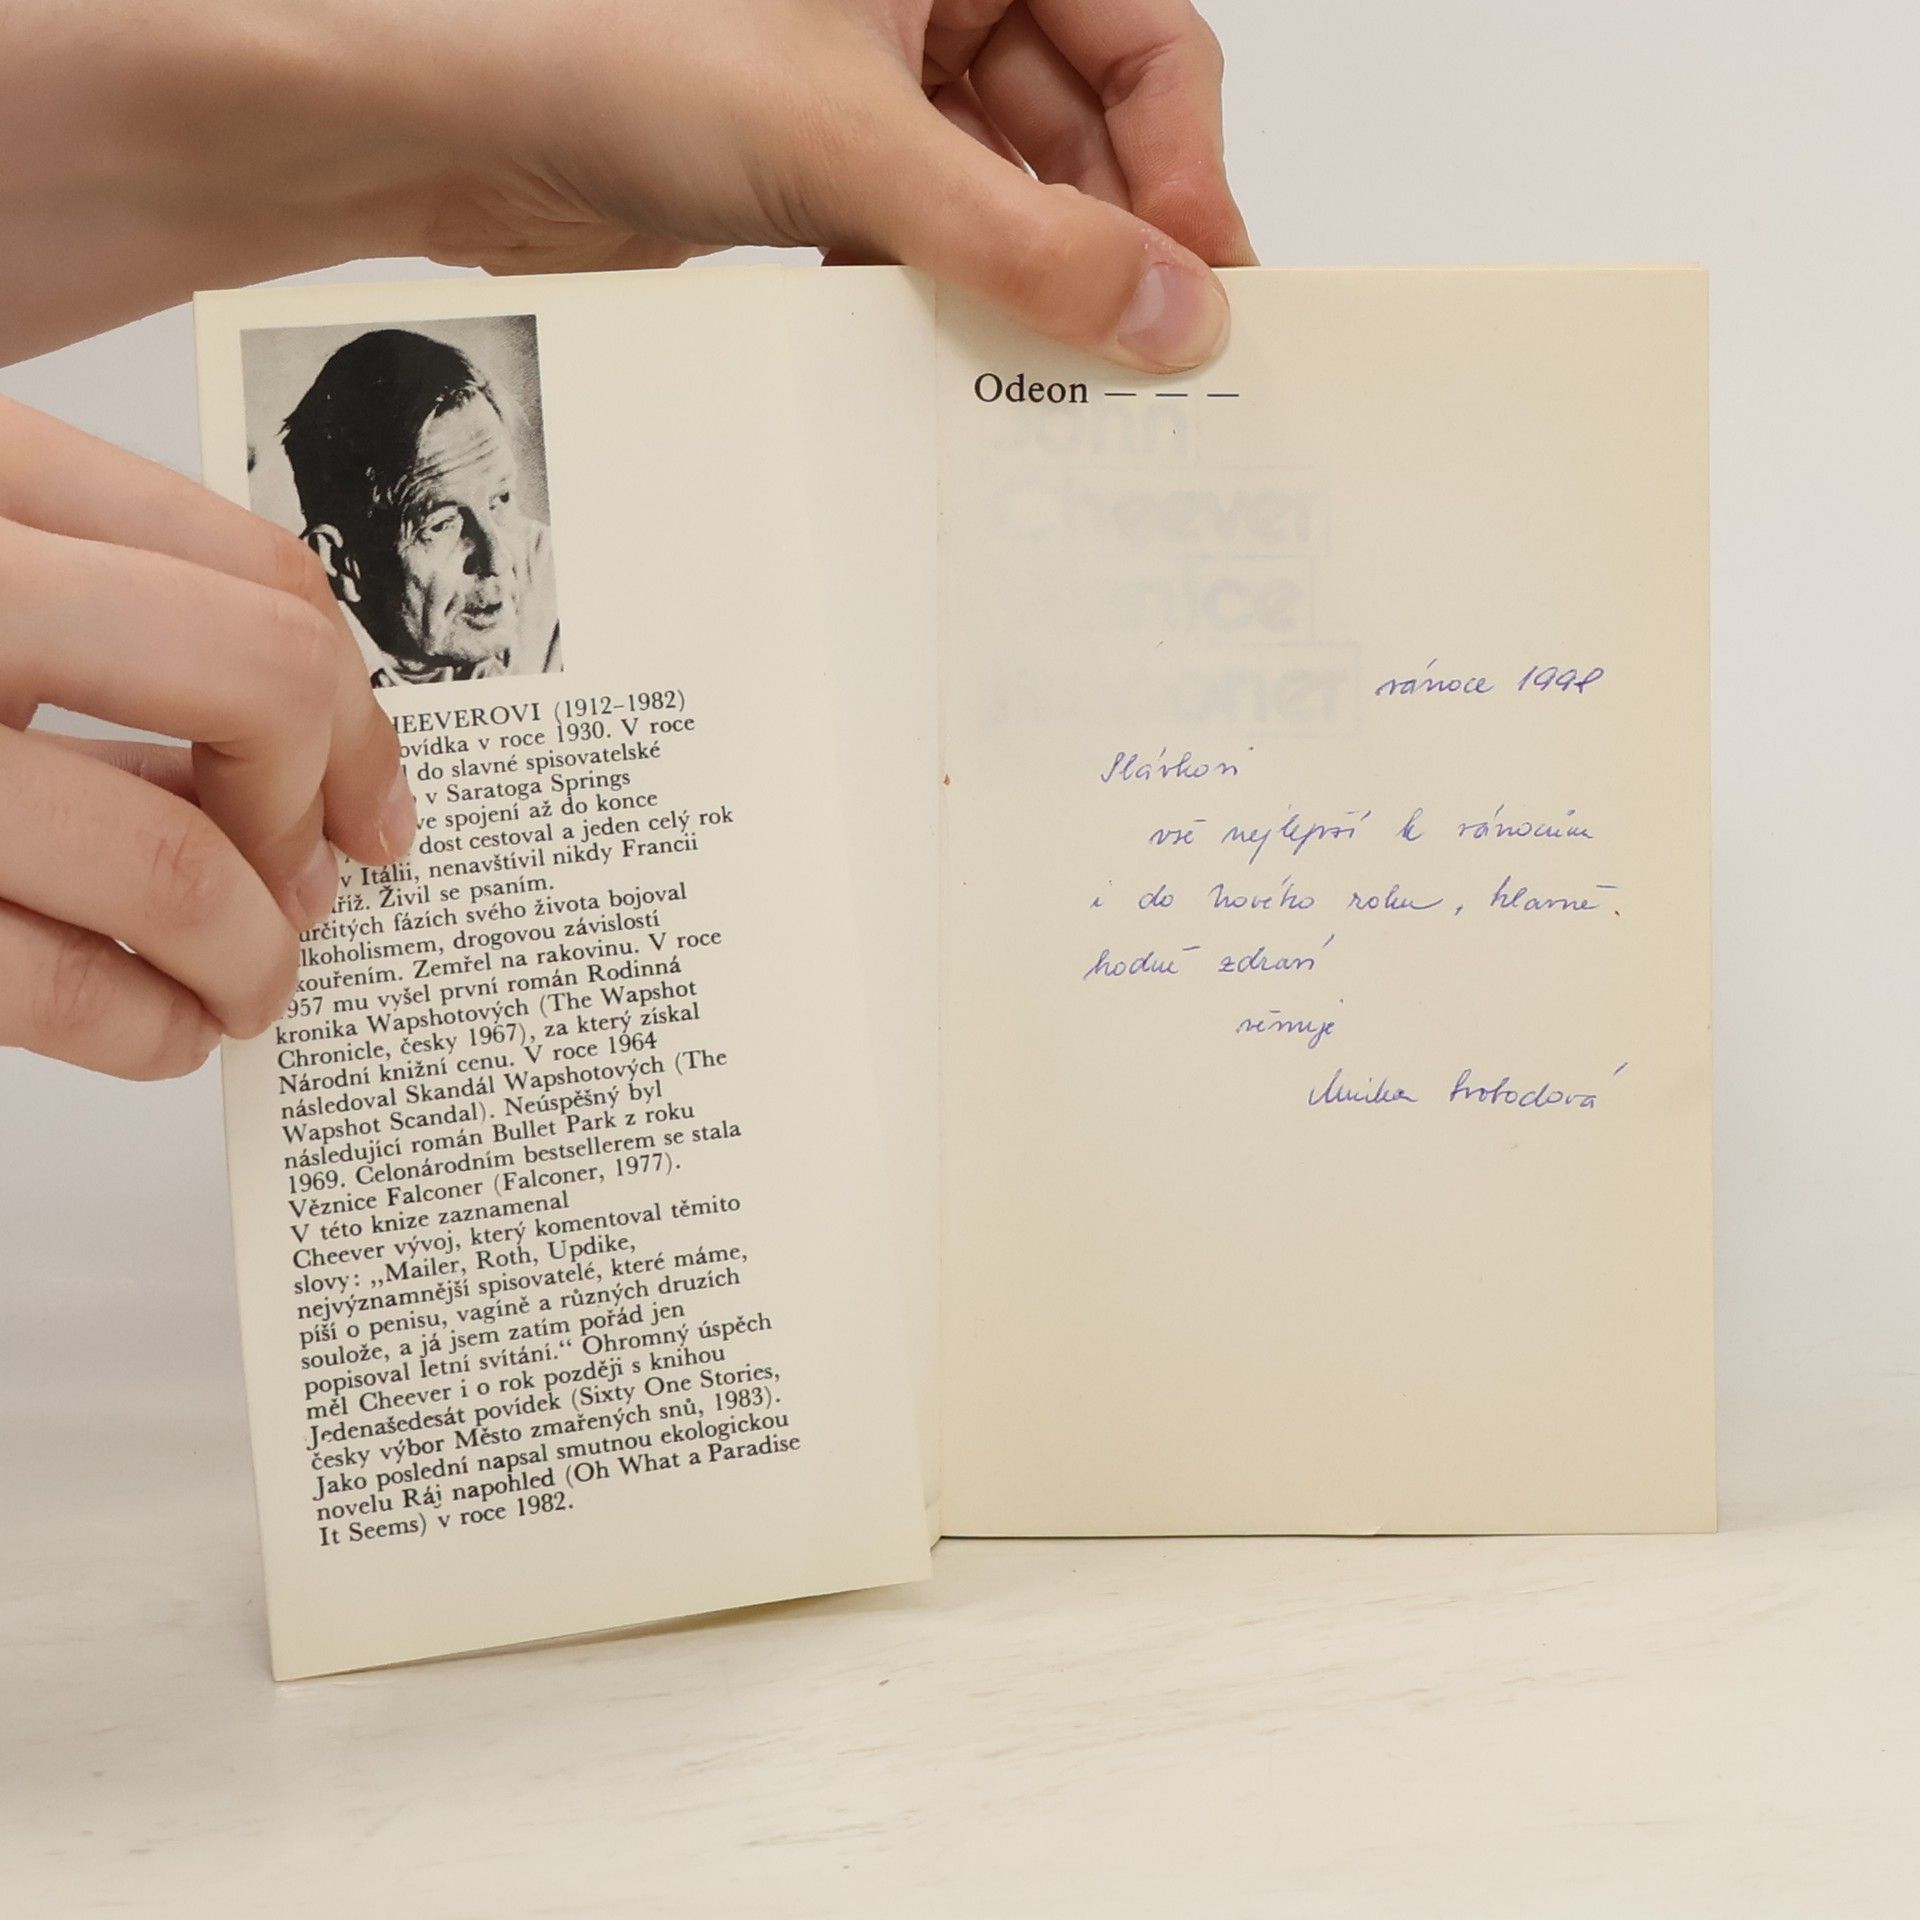 HEEVEROVI (1912–1982)
ovídka v roce 1930. V roce
do slavné spisovatelské
v Saratoga Springs
ve spojení až do konce
dost cestoval a jeden celý rok
v Itálii, nenavštívil nikdy Francii
říž. Živil se psaním.
určitých fázích svého života bojoval
lkoholismem, drogovou závislostí
kouřením. Zemřel na rakovinu. V roce
957 mu vyšel první román Rodinná
kronika Wapshotových (The Wapshot
Chronicle, česky 1967), za který získal
Národní knižní cenu. V roce 1964
následoval Skandál Wapshotových (The
Wapshot Scandal). Neúspěšný byl
následující román Bullet Park z roku
1969. Celonárodním bestsellerem se stala
Věznice Falconer (Falconer, 1977).
V této knize zaznamenal
Cheever vývoj, který komentoval těmito
slovy: „Mailer, Roth, Updike,
nejvýznamnější spisovatelé, které máme,
píší o penisu, vagíně a různých druzích
soulože, a já jsem zatím pořád jen
popisoval letní svítání.“ Ohromný úspěch
měl Cheever i o rok později s knihou
Jedenašedesát povídek (Sixty One Stories,
česky výbor Město zmařených snů, 1983).
Jako poslední napsal smutnou ekologickou
novelu Ráj napohled (Oh What a Paradise
It Seems) v roce 1982.
Odeon — — —
vánoce 1998
Slávkovi
vše nejlepší k vánocům
i do nového roku, hlavně
hodně zdraví
věnuje
Svobodová